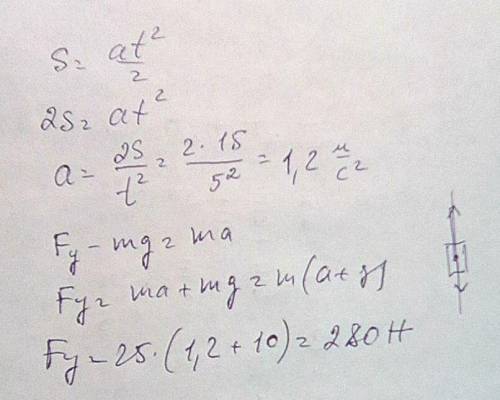 S = at²/2
2S = at²
a = 2S/t² = 2·15/5² = 1,2 м/с²
Fy - mg = ma
Fy = ma + mg = m(a+g)
Fy = 25·(1,2+10) = 280 Н